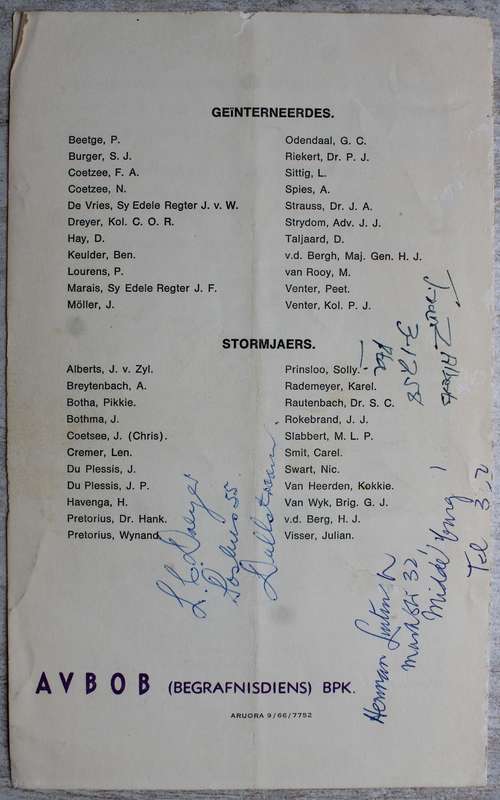 GEÏNTERNEERDES.
Beetge, P.
Burger, S. J.
Coetzee, F. A.
Coetzee, N.
De Vries, Sy Edele Regter J. v. W.
Dreyer, Kol. C. O. R.
Hay, D.
Keulder, Ben.
Lourens, P.
Marais, Sy Edele Regter J. F.
Möller, J.
Odendaal, G. C.
Riekert, Dr. P. J.
Sittig, L.
Spies, A.
Strauss, Dr. J. A.
Strydom, Adv. J. J.
Taljaard, D.
v.d. Bergh, Maj. Gen. H. J.
van Rooy, M.
Venter, Peet.
Venter, Kol. P. J.
STORMJAERS.
Alberts, J. v. Zyl.
Breytenbach, A.
Botha, Pikkie.
Bothma, J.
Coetsee, J. (Chris).
Cremer, Len.
Du Plessis, J.
Du Plessis, J. P.
Havenga, H.
Pretorius, Dr. Hank.
Pretorius, Wynand.
Prinsloo, Solly.
Rademeyer, Karel.
Rautenbach, Dr. S. C.
Rokebrand, J. J.
Slabbert, M. L. P.
Smit, Carel.
Swart, Nic.
Van Heerden, Køkkie.
Van Wyk, Brig. G. J.
v.d. Berg, H. J.
Visser, Julian.
Posbus 55
Dullstroom
Herman
Markstr 32
Middelburg
Tel 3
AVBOB (BEGRAFNISDIENS) BPK.
ARUORA 9/66/7752